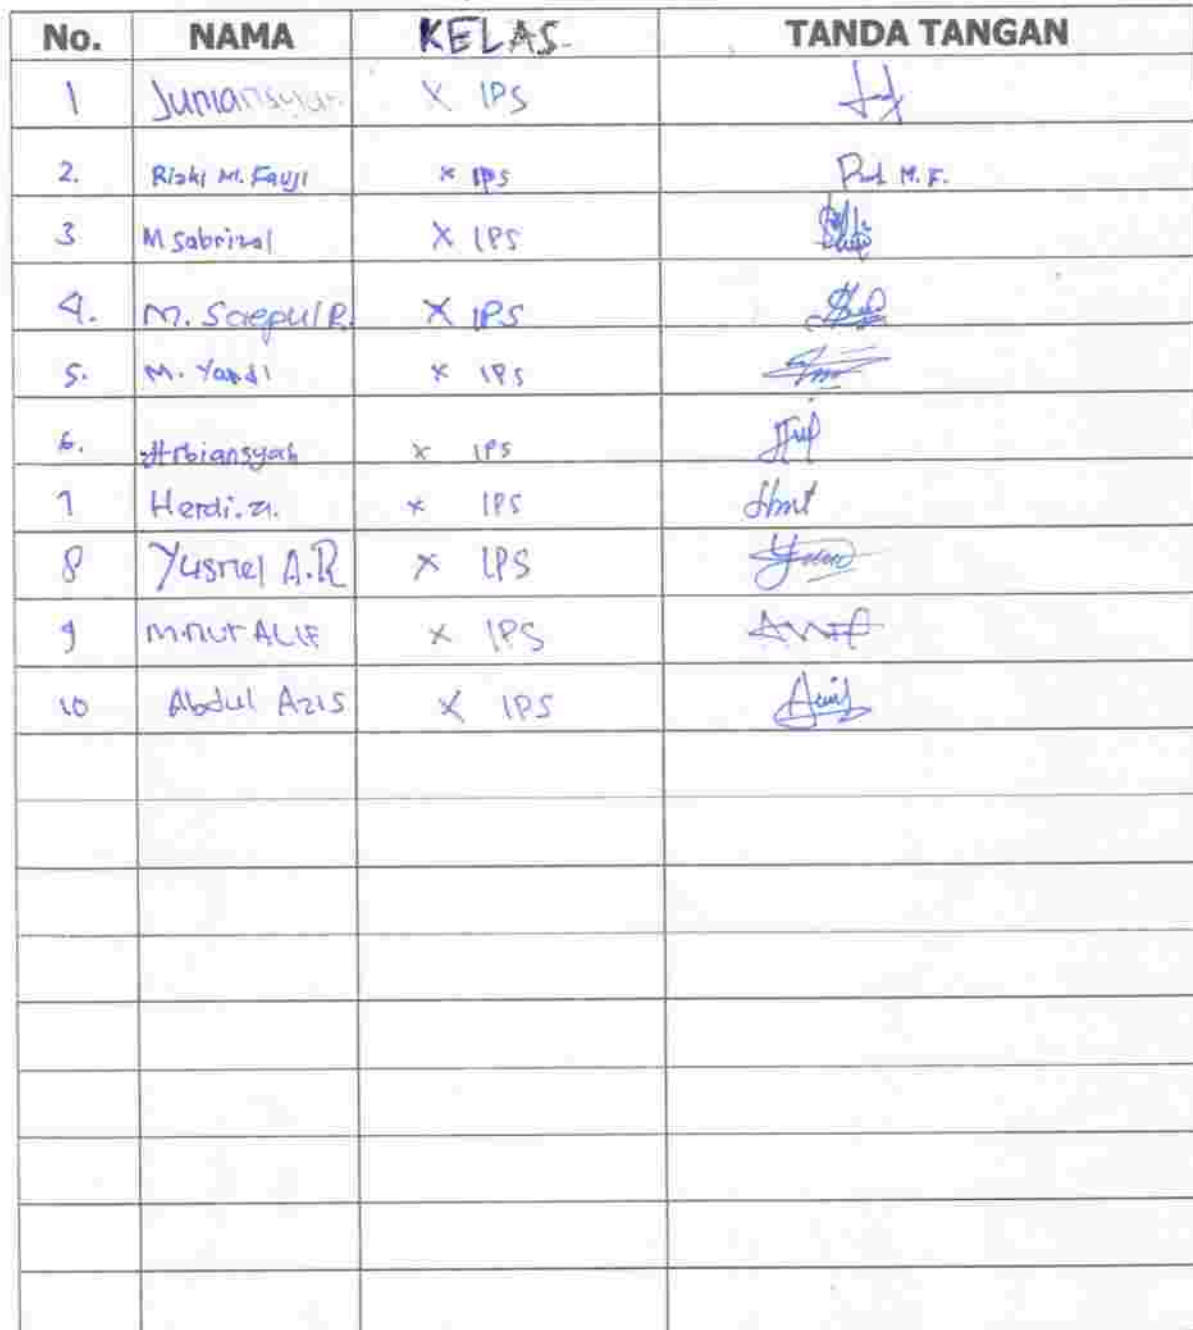 No. NAMA KELAS. TANDA TANGAN
1 Juniansyah X IPS
2. Rizki M. Fauji X IPS M. F.
3 M Sabrizal X IPS
4. M. Saepul R. X IPS
5. M. Yandi X IPS
6. X IPS
7 Herdi. X IPS
8 Yusriel A.R X IPS
9 M.nur ALIF X IPS
10 Abdul Azis X IPS